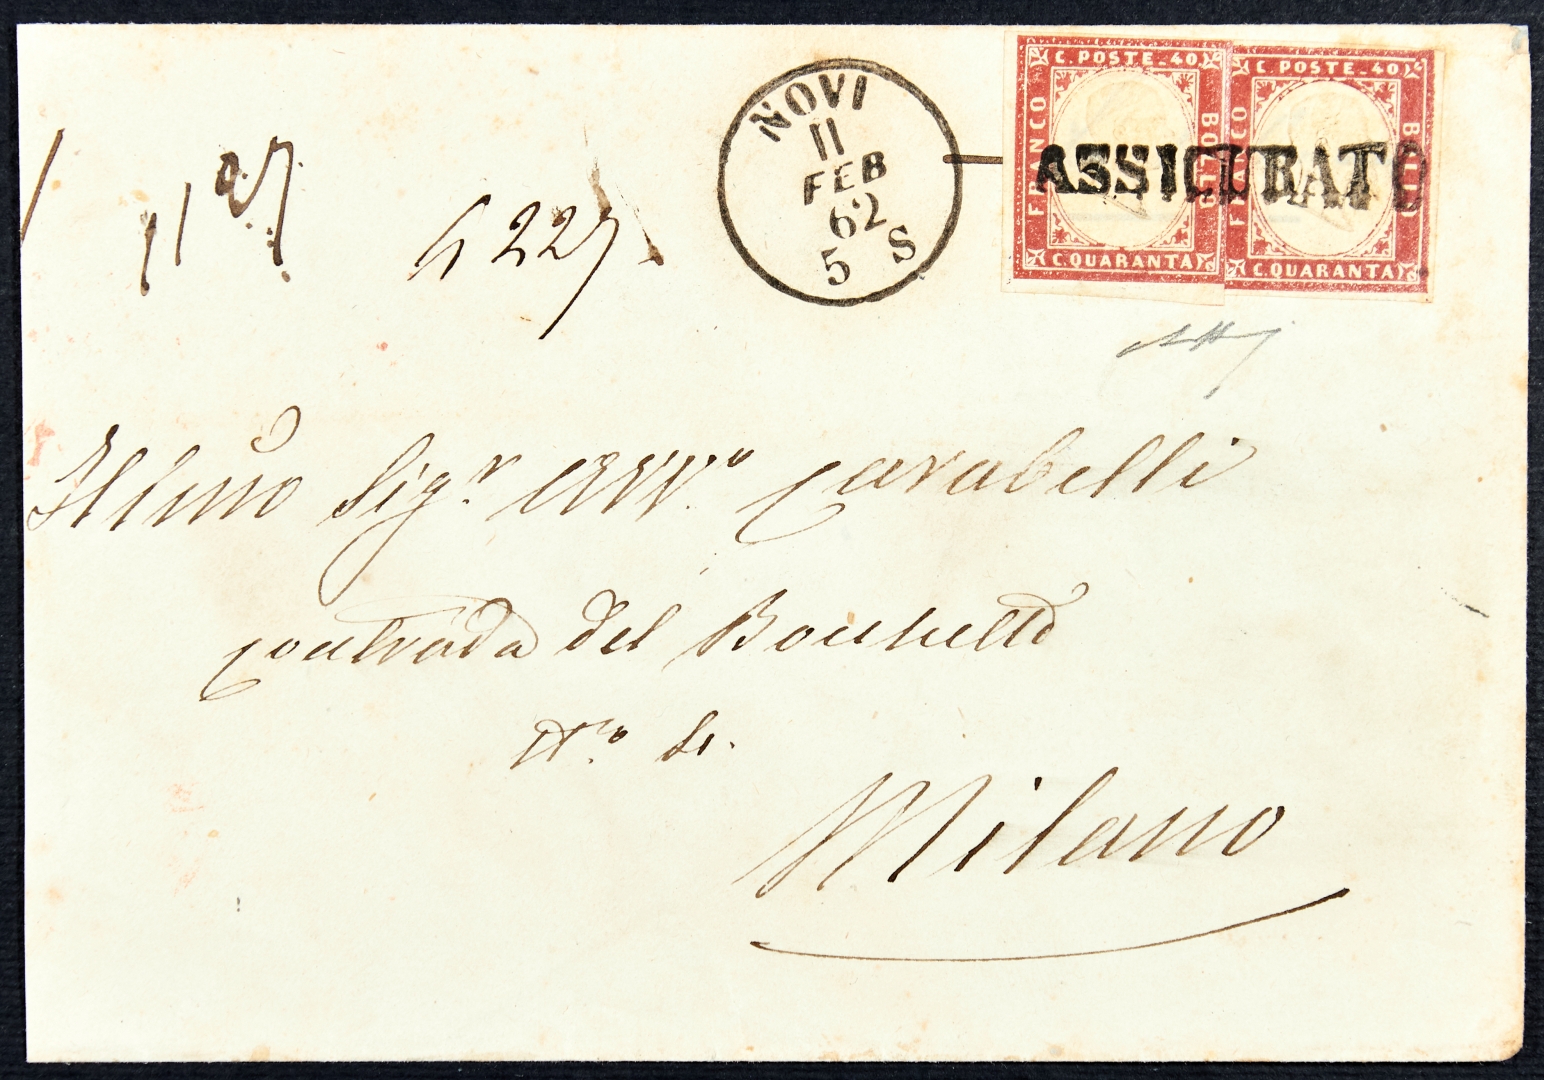 NOVI
11
FEB
62
5 S
C. POSTE. 40
FRANCO
BOLLO
C. QUARANTA
C. POSTE. 40
FRANCO
BOLLO
C. QUARANTA
ASSICURATO
Illmo Sigr Avvo Carabelli
contrada del Bochetto
No
Milano